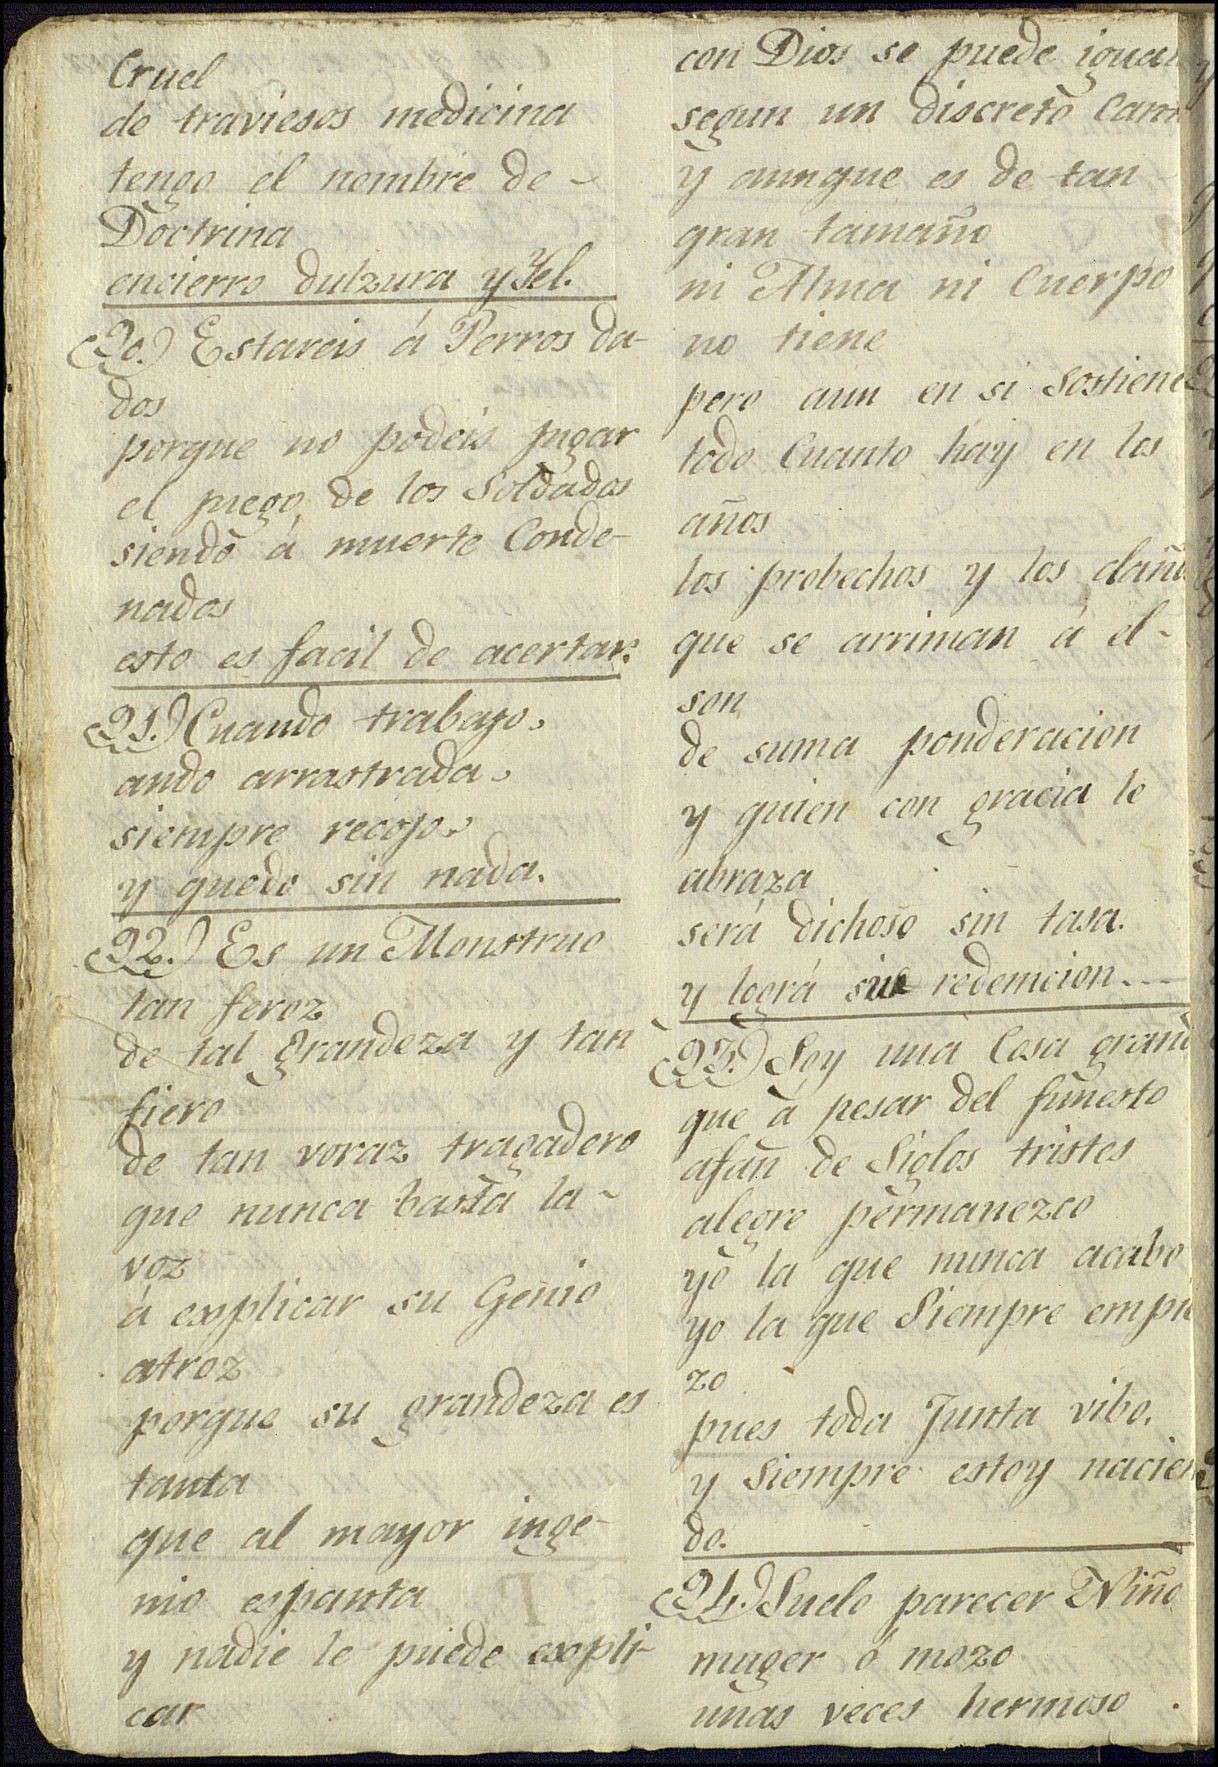 Cruel
de traviesos medicina
tengo el nombre de -
Doctrina
encierro dulzura y Yel.
(20.) Estareis á Perros da-
dos
porque no podeis jugar
el juego de los Soldados
siendo á muerte Conde-
nados
esto es facil de acertar.
(21.) Cuando trabajo.
ando arrastrada.
siempre recojo.
y quedo sin nada.
(22.) Es un Monstruo
tan feroz
de tal grandeza y tan
fiero
de tan voraz tragadero
que nunca basta la -
voz
á explicar su Genio
atroz
porque su grandeza es
tanta
que al mayor inge-
nio espanta
y nadie le puede expli-
car
con Dios se puede
segun un discreto
y aunque es de tan
gran tamaño
ni Alma ni Cuerpo
no tiene
pero aun en si Sostiene
todo Cuanto hay en los
años
los probechos y los
que se arriman á el -
son
de suma ponderacion
y quien con gracia le
abraza
será dichoso sin tasa.
y lográ redemcion
(23.) Soy una Cosa
que á pesar del funesto
afan de Siglos tristes
alegre permanezco
yo la que nunca acabo
yo la que Siempre
zo
pues toda Junta vibo.
y Siempre estoy
do.
(24.) Suelo parecer Niño
muger ó mozo
unas veces hermoso